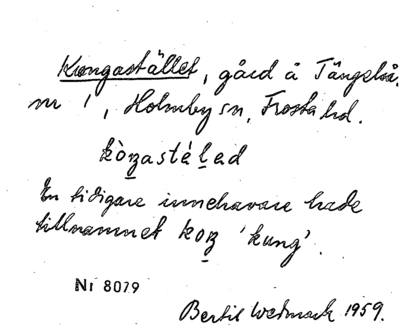 Kungastället, gård å Tängelså.
nr 1, Holmby sn, Frosta hd.
kòŋastéḷəd
En tidigare innehavare hade
tillnamnet koŋ 'kung'.
Nr 8079
Bertil 1959.